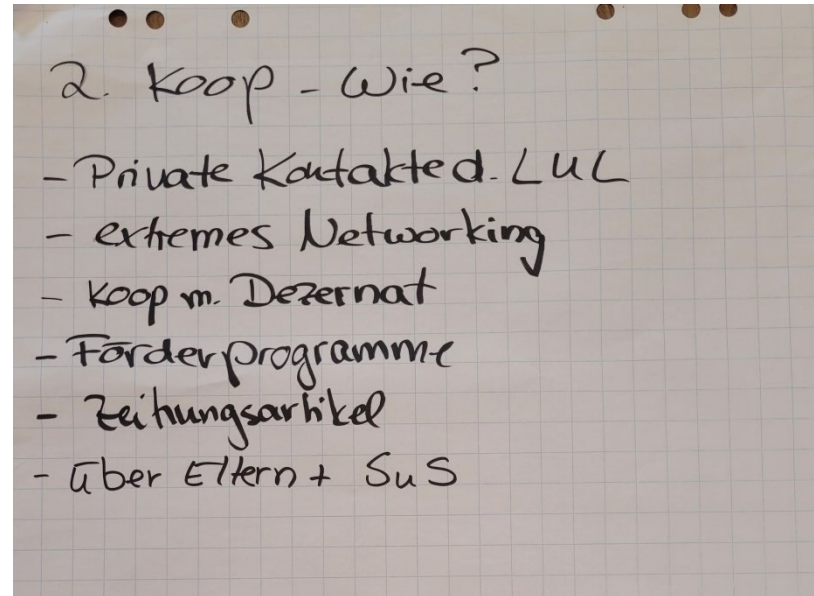 2. Koop - Wie?
- Private Kontakte d. LuL
- extremes Networking
- Koop m. Dezernat
- Förderprogramme
- Zeitungsartikel
- über Eltern + SuS